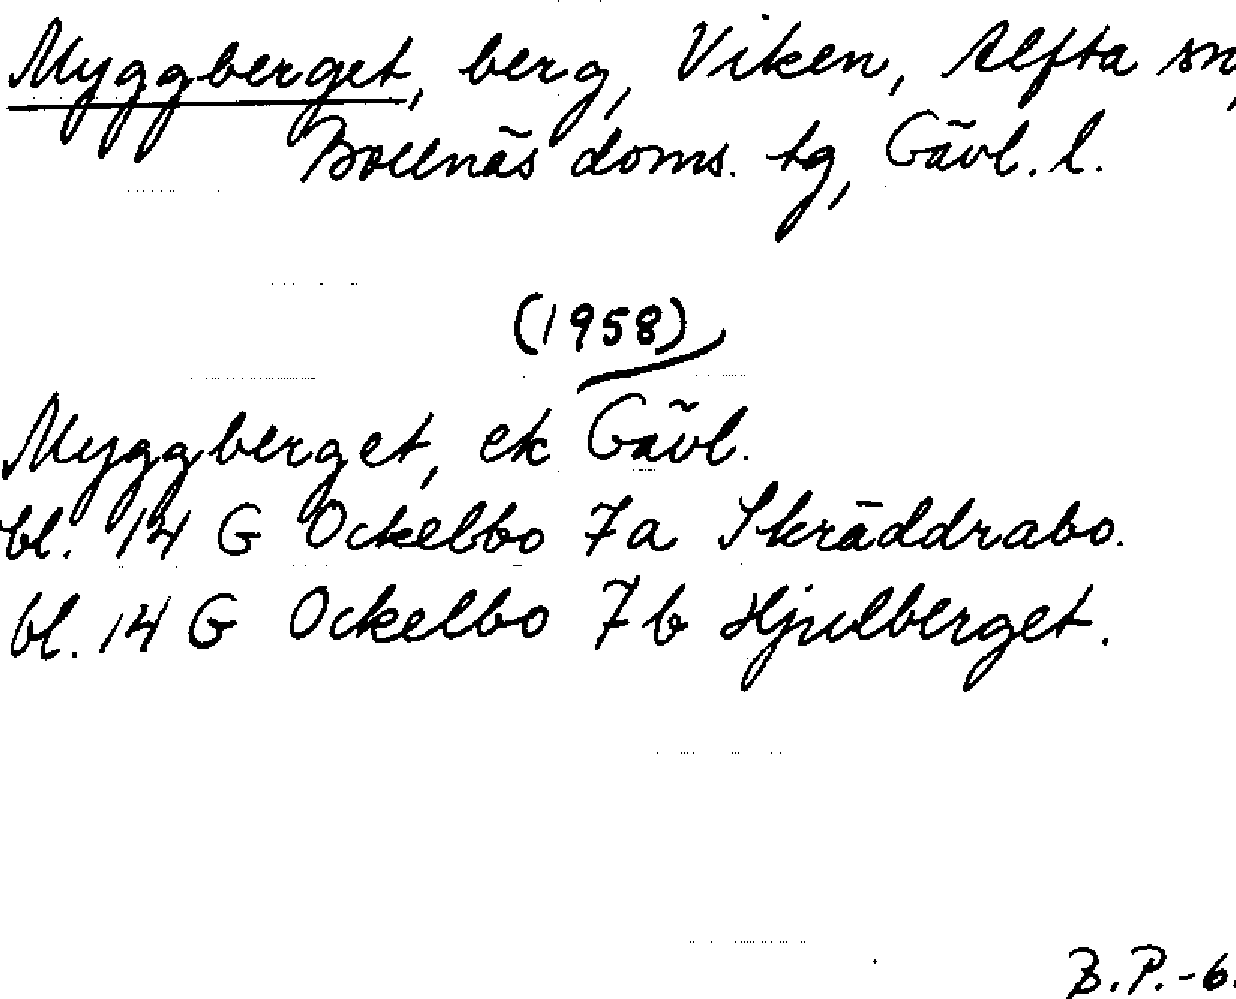 Myggberget, berg, Viken, Alfta sn,
Bollnäs doms. tg, Gävl. l.
(1958)
Myggberget, ek Gävl.
bl. 14 G Ockelbo 7a Skräddrabo.
bl. 14 G Ockelbo 7b Hjulberget.
B.P.-6